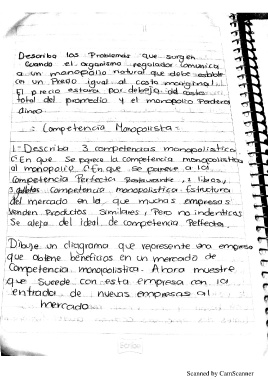 Describa los Problemas que surgen
cuando el organismo regulador comunica
a un monopolio natural que debe establer
cer un Precio igual al costo marginal.
El precio estara por debajo del costo
total del promedio y el monopolio Perdera
dinero
: Competencia Monopolista:
1- Describa 3 competencias monopolistica
¿En que se parece la competencia monopolistica
al monopolio ¿En que se parece a la
competencia Perfecta 2 libros,
competencia monopolistica Estructura
del mercado en la que muchas empresas
venden Productos similares, Pero no identicos
Se aleja del ideal de competencia Perfecta.
Dibuje un diagrama que represente una empresa
que obtiene beneficios en un mercado de
Competencia monopolistica. Ahora muestre
que sucede con esta empresa con la
entrada de nuevas empresas al
mercado
Scanned by CamScanner